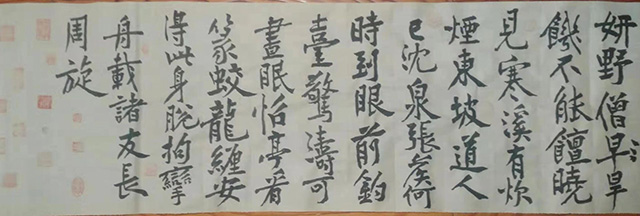 妍野僧早旱
饑不能饘曉
見寒溪有炊
煙東坡道人
已沈泉張矦何
時到眼前釣
臺驚濤可
晝眠怡亭看
篆蛟龍纏安
得此身脫拘攣
舟載諸友長
周旋